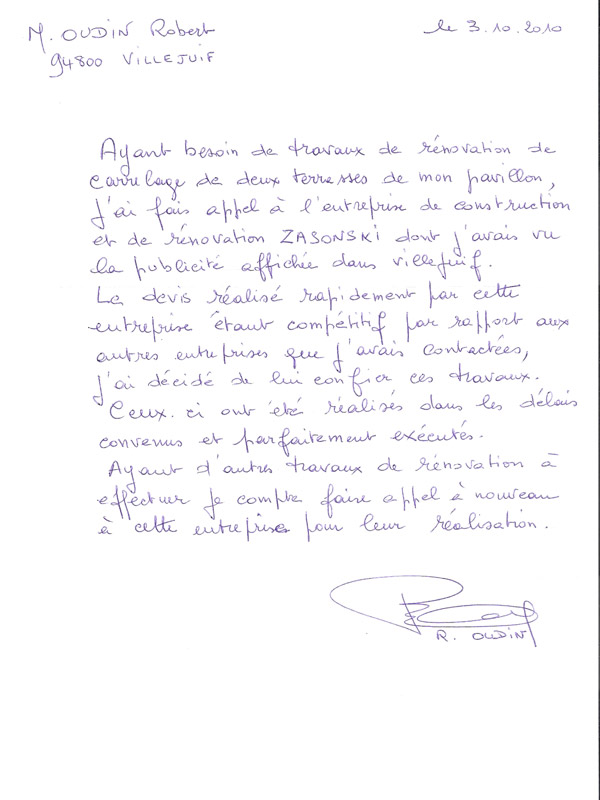 M. OUDIN Robert
94800 VILLEJUIF
le 3.10.2010
Ayant besoin de travaux de rénovation de
carrelage de deux terrasses de mon pavillon,
j'ai fais appel à l'entreprise de construction
et de rénovation ZASONSKI dont j'avais vu
la publicité affichée dans villejuif.
Le devis réalisé rapidement par cette
entreprise étant compétitif par rapport aux
autres entreprises que j'avais contactées,
j'ai décidé de lui confier ces travaux.
Ceux-ci ont été réalisés dans les délais
convenus et parfaitement exécutés.
Ayant d'autres travaux de rénovation à
effectuer je compte faire appel à nouveau
à cette entreprise pour leur réalisation.
R. OUDIN